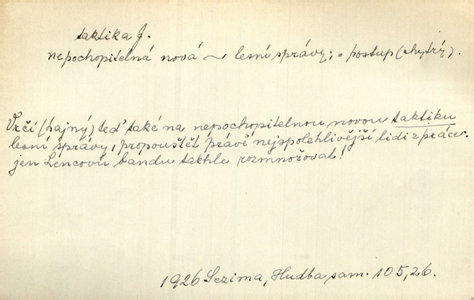 taktika f.
nepochopitelná nová ~ lesní správy; = postup (chytrý).
Vrčí (hajný) teď také na nepochopitelnou novou taktiku
lesní správy, propouštět právě nejspolehlivější lidi z práce.
jen Lencovu bandu takhle rozmnožovat!
1926 Sezima, Hudba sam. 105,26.